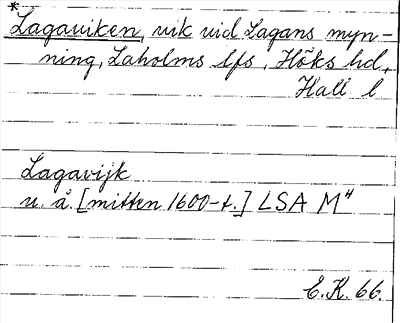 *Lagaviken, vik vid Lagans myn-
ning, Laholms lfs, Höks hd,
Hall l
Lagavijk
u. å. [mitten 1600-t.] LSA M"
E.K. 66.